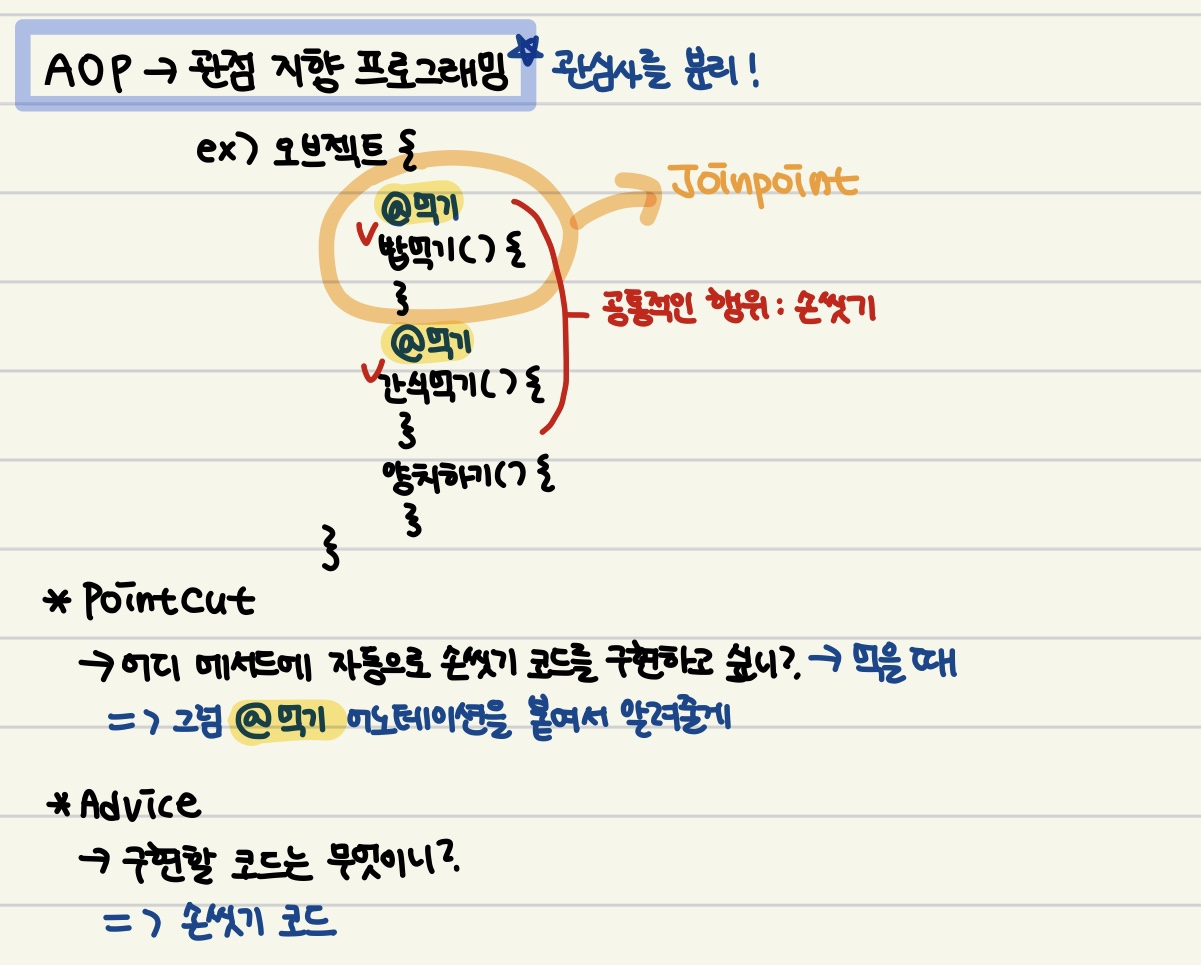 AOP → 관점 지향 프로그래밍 관심사를 분리!
ex) 오브젝트 {
@먹기
Joinpoint
밥먹기() {
}
공통적인 행위: 손씻기
@먹기
간식먹기() {
}
양치하기() {
}
}
* Pointcut
→ 어디 메서드에 자동으로 손씻기 코드를 구현하고 싶니? → 먹을 때
=> 그럼 @먹기 어노테이션을 붙여서 알려줄게
* Advice
→ 구현할 코드는 무엇이니?
=> 손씻기 코드